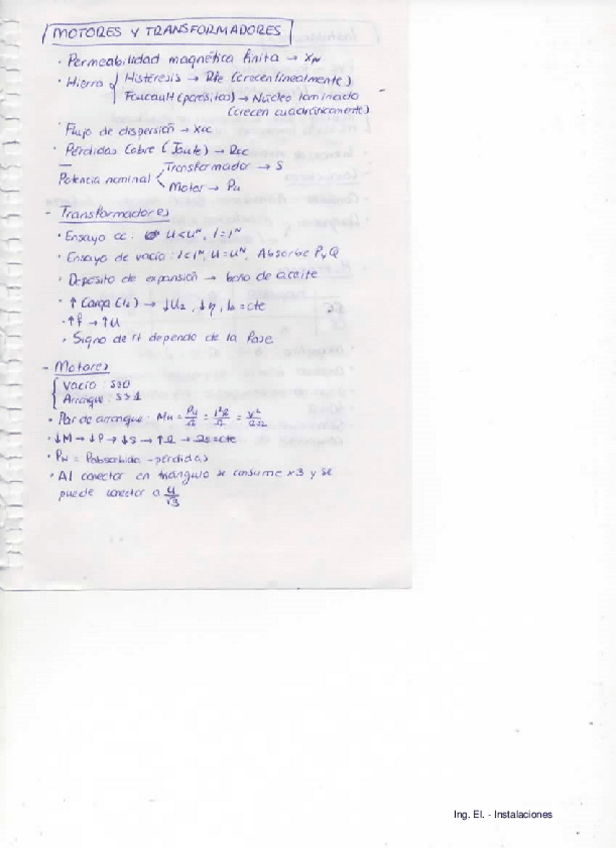 MOTORES Y TRANSFORMADORES
· Permeabilidad magnética finita → Xμ
· Hierro { Histéresis → Rfe (crecen linealmente)
Foucault (parásitas) → Núcleo laminado
(crecen cuadráticamente)
· Flujo de dispersión → Xcc
· Pérdidas Cobre (Joule) → Rcc
Potencia nominal < Transformador → S
Motor → Pu
- Transformadores
· Ensayo cc: U<Uᴺ, I=Iᴺ
· Ensayo de vacío: I<Iᴺ, U=Uᴺ, Absorbe P y Q
· Depósito de expansión → baño de aceite
· ↑ Carga (I₂) → ↓U₂, ↓η, I₀=cte
· ↑f → ↑U
· Signo de rt depende de la fase
- Motores
{ Vacío: s≃0
Arranque: s≃1
· Par de arranque: Mu = Pu/Ω = I²R/Ω = V²/RΩ
· ↓M → ↓P → ↓s → ↑Ω →
· Pu = Pabsorbida - pérdidas
· Al conectar en triángulo se consume x3 y se
puede conectar a U/√3
Ing. El. - Instalaciones